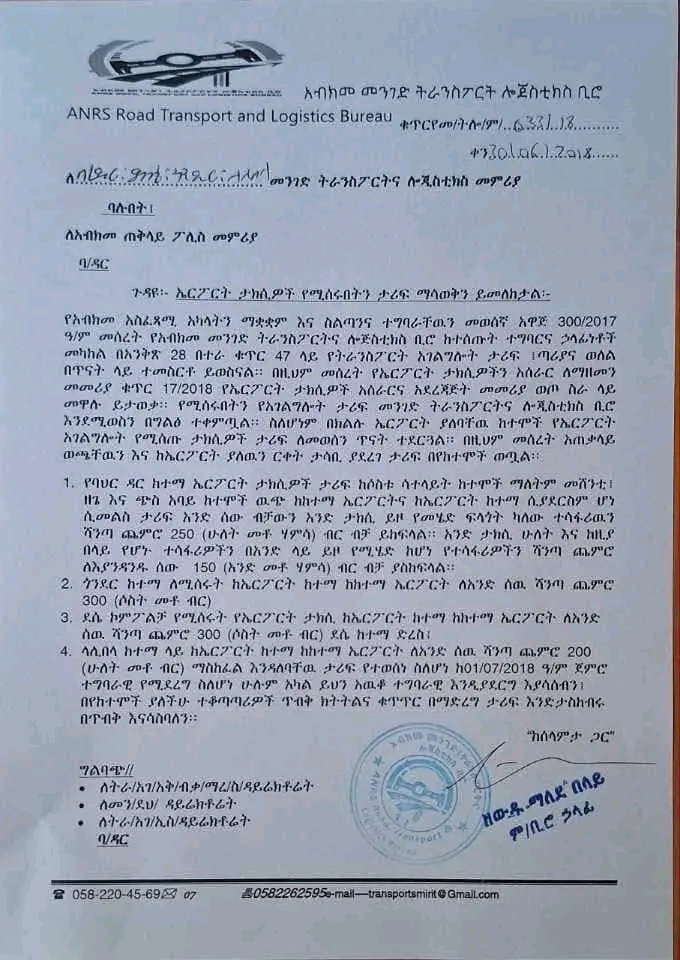 አብክመ መንገድ ትራንስፖርት ሎጀስቲክስ ቢሮ
ANRS Road Transport and Logistics Bureau ቁጥርየመ/ትሎ/ም/..633/18..........
ቀን30/06/2018......
መንገድ ትራንስፖርትና ሎጂስቲክስ መምሪያ
ባሉበት፤
ለአብክመ ጠቅላይ ፖሊስ መምሪያ
ባ/ዳር
ጉዳዩ፡- ኤርፖርት ታክሲዎች የሚሰሩበትን ታሪፍ ማሳወቅን ይመለከታል፡-
የአብክመ አስፈጻሚ አካላትን ማቋቋም እና ስልጣንና ተግባራቸዉን መወሰኛ አዋጅ 300/2017
ዓ/ም መሰረት የአብክመ መንገድ ትራንስፖርትና ሎጂስቲክስ ቢሮ ከተሰጡት ተግባርና ኃላፊነቶች
መካከል በአንቅጽ 28 በተራ ቁጥር 47 ላይ የትራንስፖርት አገልግሎት ታሪፍ ፤ጣሪያና ወለል
በጥናት ላይ ተመስርቶ ይወስናል። በዚህም መሰረት የኤርፖርት ታክሲዎችን አሰራር ለማዘመን
መመሪያ ቁጥር 17/2018 የኤርፖርት ታክሲዎች አሰራርና አደረጃጅት መመሪያ ወጦ ስራ ላይ
መዋሉ ይታወቃ። የሚሰሩበትን የአገልግሎት ታሪፍ መንገድ ትራንስፖርትና ሎጂስቲክስ ቢሮ
እንደሚወስን በግልፅ ተቀምጧል። ስለሆነም በክልሉ ኤርፖርት ያለባቸዉ ከተሞች የኤርፖርት
አገልግሎት የሚሰጡ ታክሲዎች ታሪፍ ለመወሰን ጥናት ተደርጓል። በዚህም መሰረት አጠቃላይ
ወጫቸዉን እና ከኤርፖርት ያለዉን ርቀት ታሳቢ ያደረገ ታሪፍ በየከተሞች ወጧል።
1. የባህር ዳር ከተማ ኤርፖርት ታክሲዎች ታሪፍ ከሶስቱ ሳተላይት ከተሞች ማለትም መሸንቲ፤
ዘጌ እና ጭስ አባይ ከተሞች ዉጭ ከከተማ ኤርፖርትና ከኤርፖርት ከተማ ሲያደርስም ሆነ
ሲመልስ ታሪፍ አንድ ሰው ብቻውን አንድ ታክሲ ይዞ የመሄድ ፍላጎት ካለው ተሳፋሪዉን
ሻንጣ ጨምሮ 250 (ሁለት መቶ ሃምሳ) ብር ብቻ ይከፍላል። አንድ ታክሲ ሁለት እና ከዚያ
በላይ የሆኑ ተሳፋሪዎችን በአንድ ላይ ይዞ የሚሄድ ከሆነ የተሳፋሪዎችን ሻንጣ ጨምሮ
ለእያንዳንዱ ሰው 150 (አንድ መቶ ሃምሳ) ብር ብቻ ያስከፍላል።
2. ጎንደር ከተማ ለሚሰሩት ከኤርፖርት ከተማ ከከተማ ኤርፖርት ለአንድ ሰዉ ሻንጣ ጨምሮ
300 (ሶስት መቶ ብር)
3. ደሴ ኮምፖልቻ የሚሰሩት የኤርፖርት ታክሲ ከኤርፖርት ከተማ ከከተማ ኤርፖርት ለአንድ
ሰዉ ሻንጣ ጨምሮ 300 (ሶስት መቶ ብር) ደሴ ከተማ ድረስ፤
4. ላሊበላ ከተማ ላይ ከኤርፖርት ከተማ ከከተማ ኤርፖርት ለአንድ ሰዉ ሻንጣ ጨምሮ 200
(ሁለት መቶ ብር) ማስከፈል እንዳለባቸዉ ታሪፍ የተወሰነ ስለሆነ ከ01/07/2018 ዓ/ም ጀምሮ
ተግባራዊ የሚደረግ ስለሆነ ሁሉም አካል ይህን አዉቆ ተግባራዊ እንዲያደርግ እያሳሰብን፤
በየከተሞች ያለችሁ ተቆጣጣሪዎች ጥብቅ ክትትልና ቁጥጥር በማድረግ ታሪፍ እንድታስከብሩ
በጥብቅ እናሳስባለን።
“ከሰላምታ ጋር”
ግልባጭ//
• ለትራ/አገ/አቅ/ብቃ/ማረ/ስ/ዳይሬክቶሬት
• ለመን/ደህ/ ዳይሬክቶሬት
• ለትራ/አገ/ኢስ/ዳይሬክቶሬት
ባ/ዳር
ዘውዱ ማለደ በላይ
ም/ቢሮ ኃላፊ
☎ 058-220-45-69✉ 07 0582262595e-mail---transportsmirit@Gmail.com